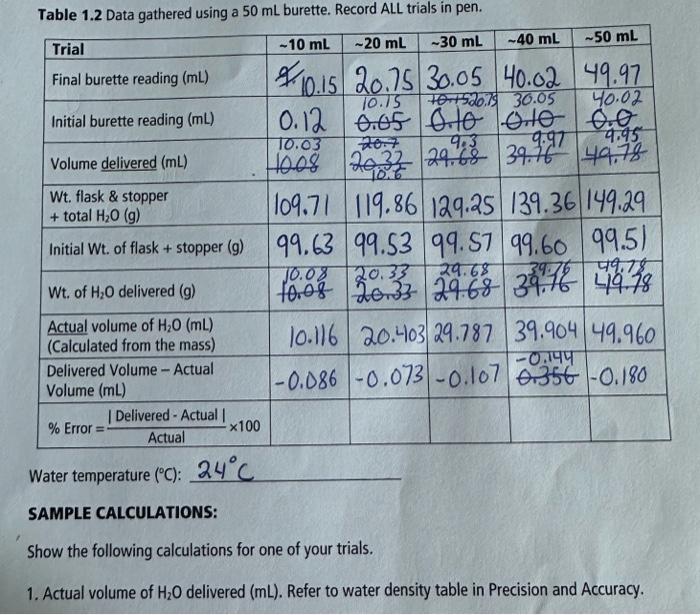 Table 1.2 Data gathered using a 50 mL burette. Record ALL trials in pen.
Trial ~10 mL ~20 mL ~30 mL ~40 mL ~50 mL
Final burette reading (mL) 10.15 20.75 30.05 40.02 49.97
10.15 10.15 20.75 30.05 40.02
Initial burette reading (mL) 0.12 0.05 0.10 0.10 0.0
10.03 20.7 9.3 9.97 9.95
Volume delivered (mL) 10.08 20.33 29.68 39.76 49.78
10.6
Wt. flask & stopper
+ total H₂O (g) 109.71 119.86 129.25 139.36 149.29
Initial Wt. of flask + stopper (g) 99.63 99.53 99.57 99.60 99.51
10.08 20.33 29.68 39.76 49.78
Wt. of H₂O delivered (g) 10.08 20.33 29.68 39.76 49.78
Actual volume of H₂O (mL)
(Calculated from the mass) 10.116 20.403 29.787 39.904 49.960
Delivered Volume – Actual -0.144
Volume (mL) -0.086 -0.073 -0.107 0.356 -0.180
% Error = | Delivered - Actual | x100
Actual
Water temperature (°C): 24°C
SAMPLE CALCULATIONS:
Show the following calculations for one of your trials.
1. Actual volume of H₂O delivered (mL). Refer to water density table in Precision and Accuracy.